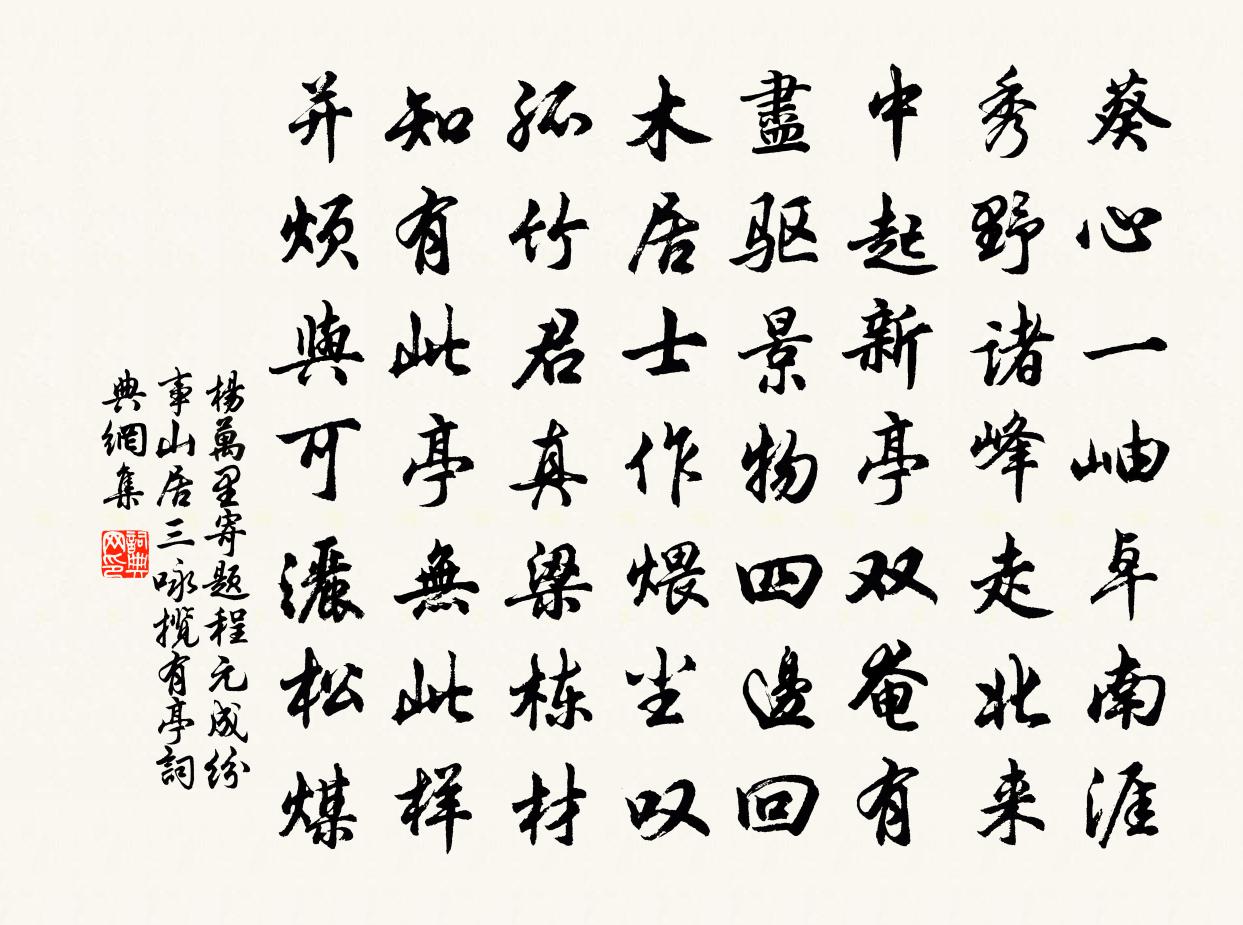 葵心一岫卓南涯
秀野诸峰走北来
中起新亭双奄有
盡驱景物四邊回
木居士作煨尘叹
孤竹君真梁栋材
知有此亭無此样
并烦與可灑松煤
楊萬里寄题程元成纷
事山居三咏揽有亭詞
典網集
詞典
网印